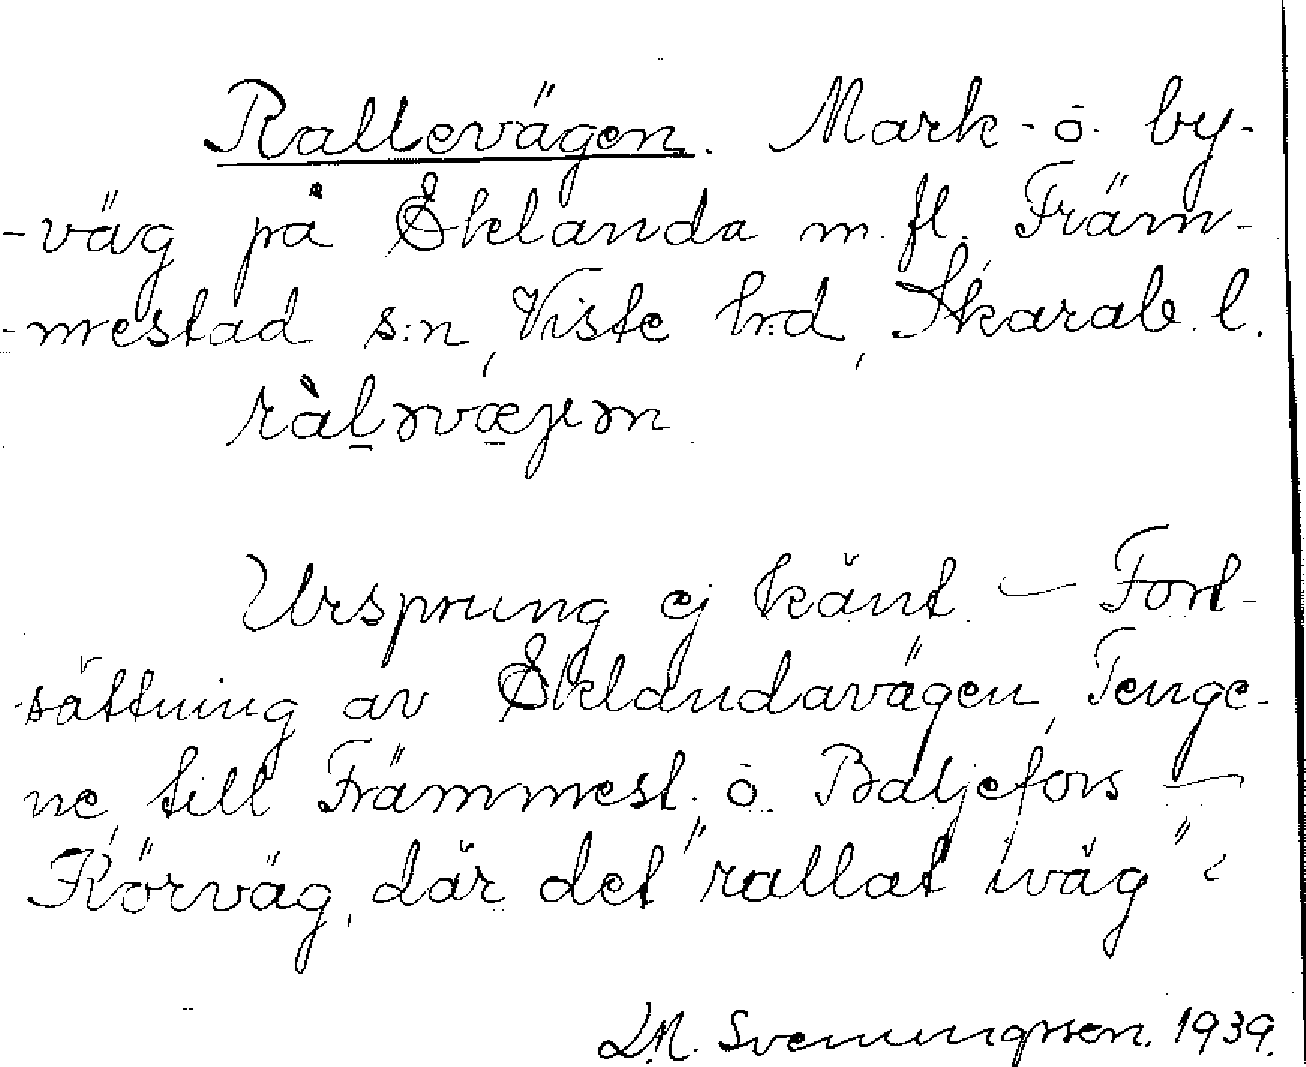 Rallevägen. Mark- o. by-
-väg på Eklanda m. fl. Främ-
-mestad s:n, Viste h:d, Skarab. l.
ràl̲əvæ̲jen
Ursprung ej känt. — Fort-
sättning av Eklandavägen, Tenge-
ne, till Främmest. o. Baljefors —
Körväg, där det "rallat iväg"
L.M. Svenungsson. 1939.